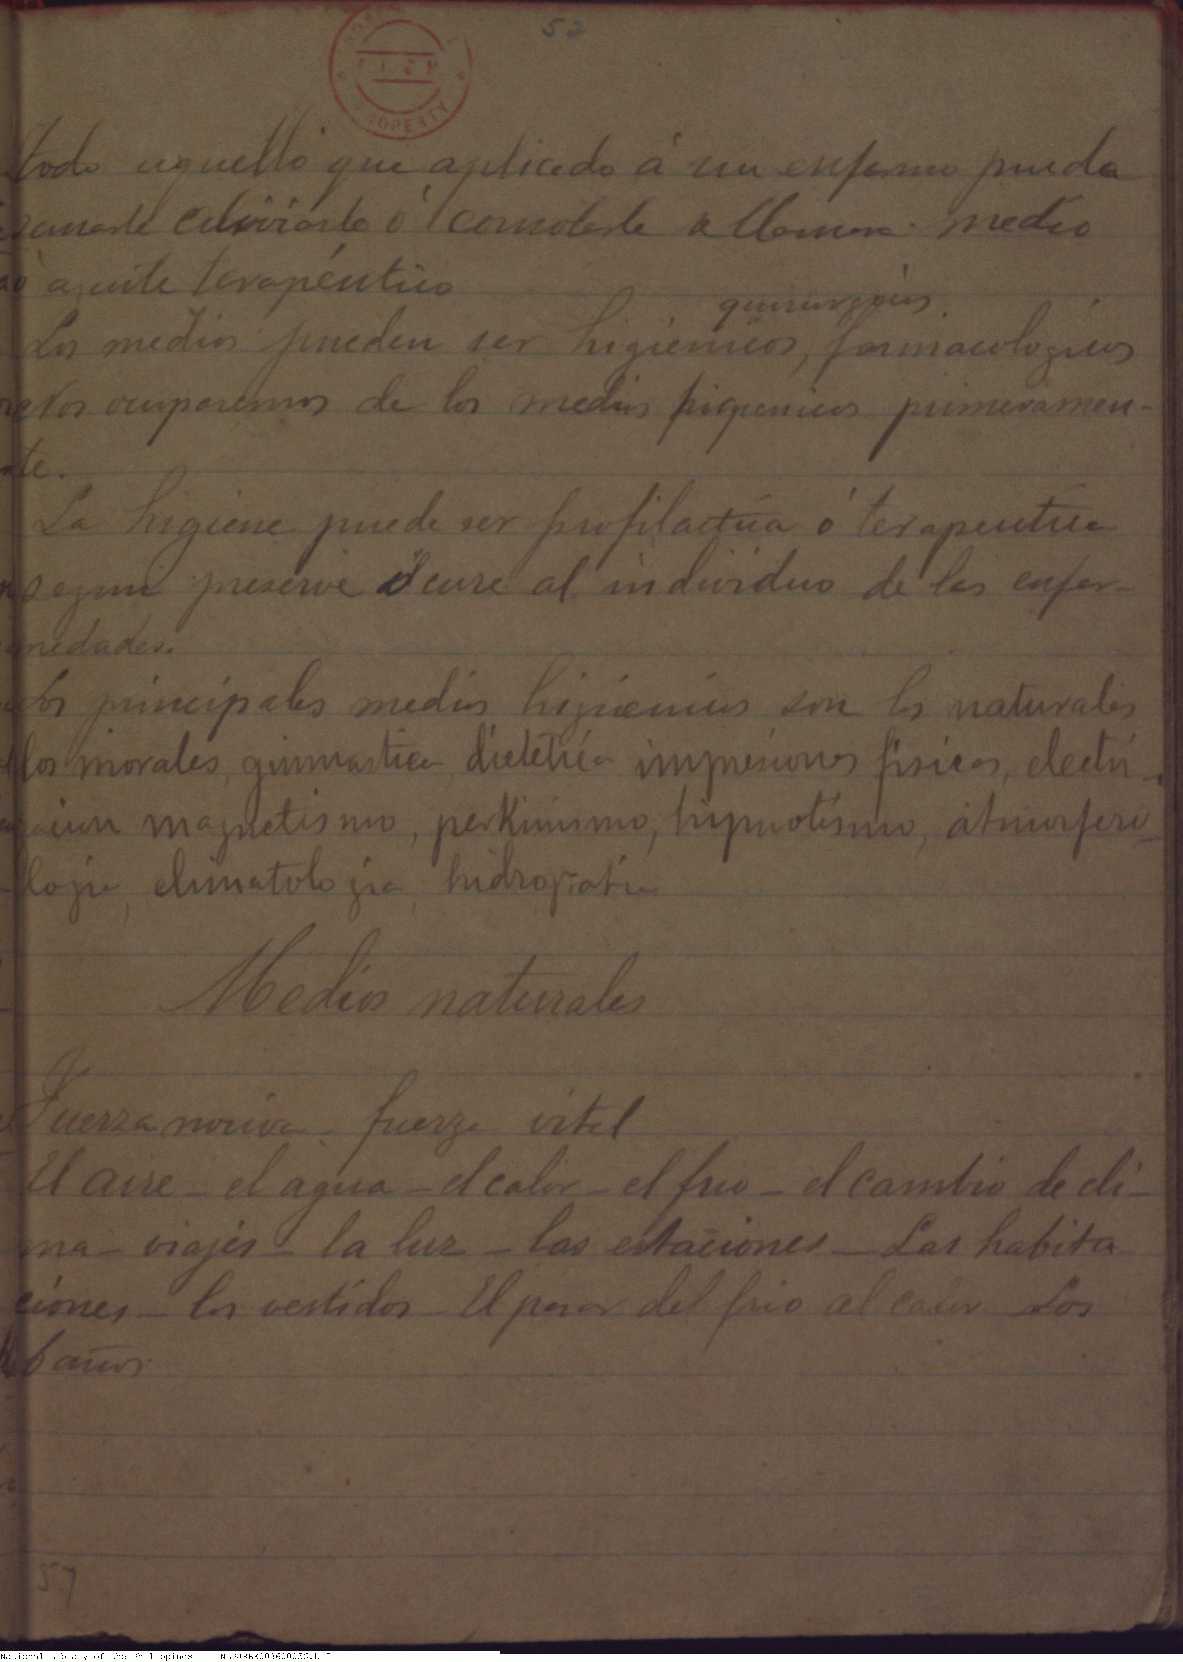 52
PROPERTY
Todo aquello que aplicado á un enfermo pueda
sanarle aliviarle ó consolarle se llamara medio
ó agente terapéutico
quirurgicos
Los medios pueden ser higiénicos, farmacologicos
nos ocuparemos de los medios higienicos primeramen-
te.
La higiene puede ser profilactica ó terapeutica
segun preserve ó cure al individuo de las enfer-
medades.
Los principales medios higienicos son los naturales
los morales, gimnastica, dietética impresiones fisicas, electri-
zacion magnetismo, perkinismo, hipnotismo, atmosfero-
logia, climatologia, hidropatia
Medios naturales
Fuerza fuerza vital
El aire - el agua - el calor - el frio - el cambio de cli-
ma - viajes - la luz - las estaciones - Las habita
ciones - los vestidos - El pasar del frio al calor Los
baños
57
National Library of the Philippines